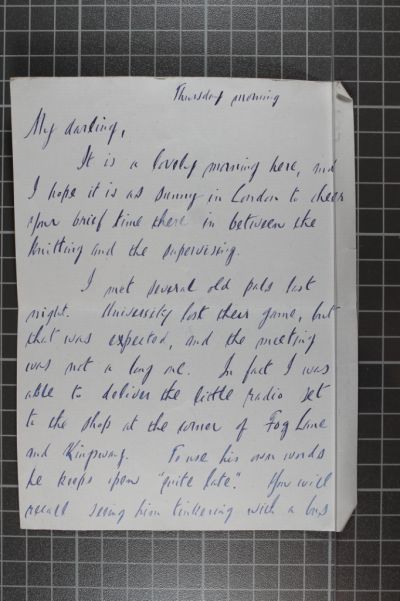 Thursday morning
My darling,
It is a lovely morning here, and
I hope it is as sunny in London to cheer
your brief time there in between the
knitting and the supervising.
I met several old pals last
night. University lost their game, but
that was expected, and the meeting
was not a long one. In fact I was
able to deliver the little radio set
to the shop at the corner of Fog Lane
and Kingsway. To use his own words
he keeps open "quite late". You will
recall seeing him tinkering with a bus